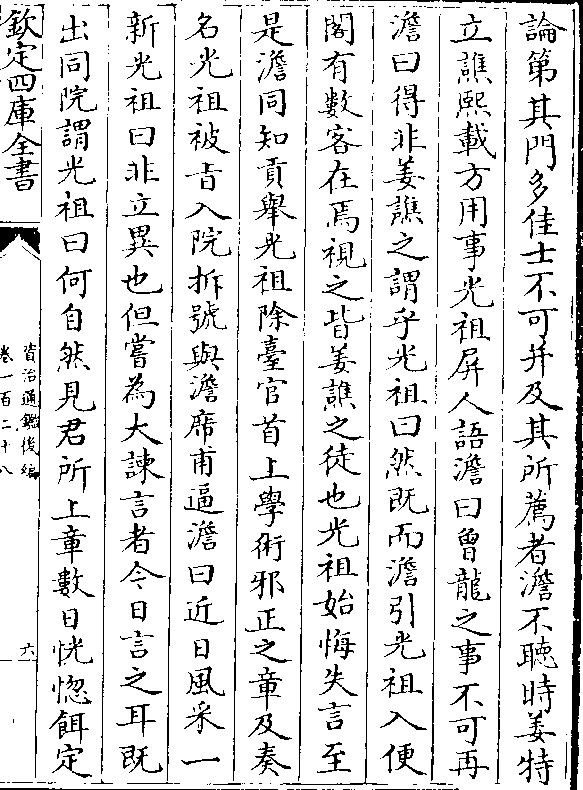 論第其門多佳士不可并及其所薦者澹不聽時姜特
立譙熙載方用事光祖屏人語澹曰曾龍之事不可再
澹曰得非姜譙之謂乎光祖曰然既而澹引光祖入便
閣有數客在焉視之皆姜譙之徒也光祖始悔失言至
是澹同知貢舉光祖除臺官首上學術邪正之章及奏
名光祖被㫖入院拆號與澹席甫逼澹曰近日風采一
新光祖曰非立異也但嘗為大諫言者今日言之耳既
出同院謂光祖曰何自然見君所上章數日恍惚餌定
欽定四庫全書
資治通鑑後編
卷一百二十八
六